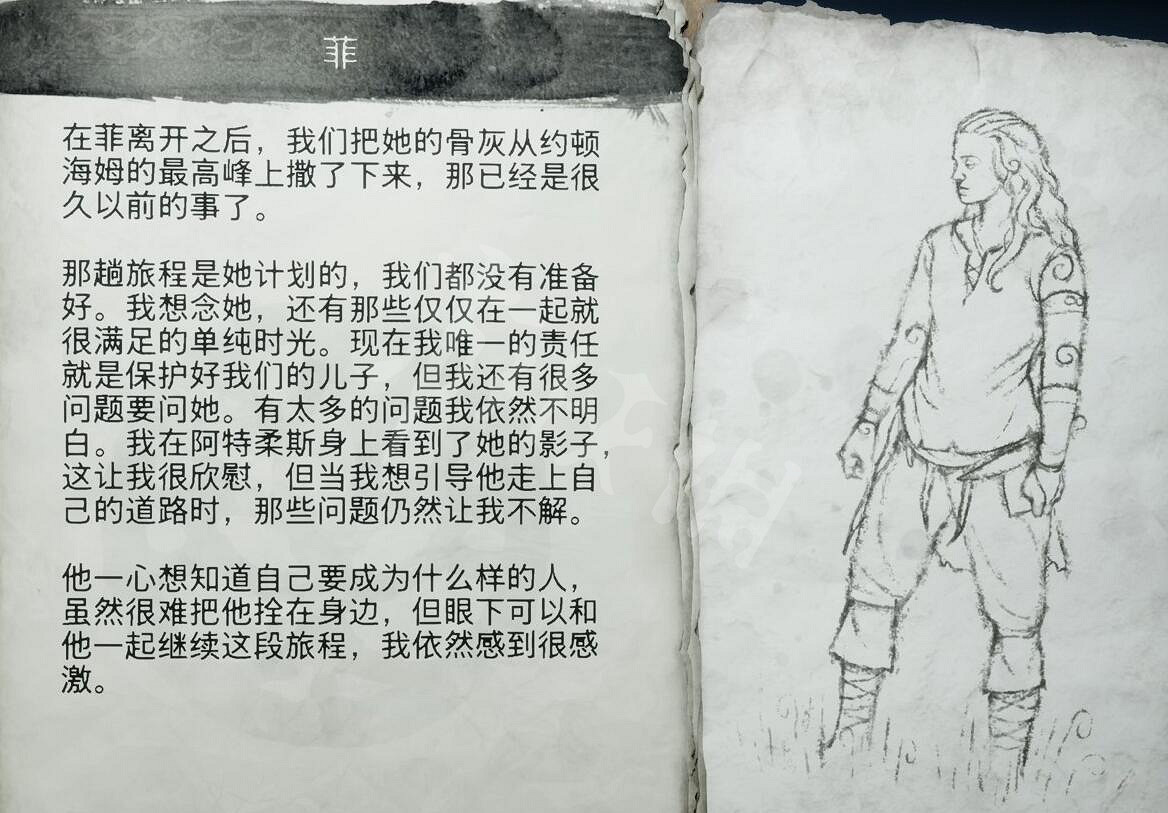 菲
在菲离开之后，我们把她的骨灰从约顿
海姆的最高峰上撒了下来，那已经是很
久以前的事了。
那趟旅程是她计划的，我们都没有准备
好。我想念她，还有那些仅仅在一起就
很满足的单纯时光。现在我唯一的责任
就是保护好我们的儿子，但我还有很多
问题要问她。有太多的问题我依然不明
白。我在阿特柔斯身上看到了她的影子，
这让我很欣慰，但当我想引导他走上自
己的道路时，那些问题仍然让我不解。
他一心想知道自己要成为什么样的人，
虽然很难把他拴在身边，但眼下可以和
他一起继续这段旅程，我依然感到很感
激。